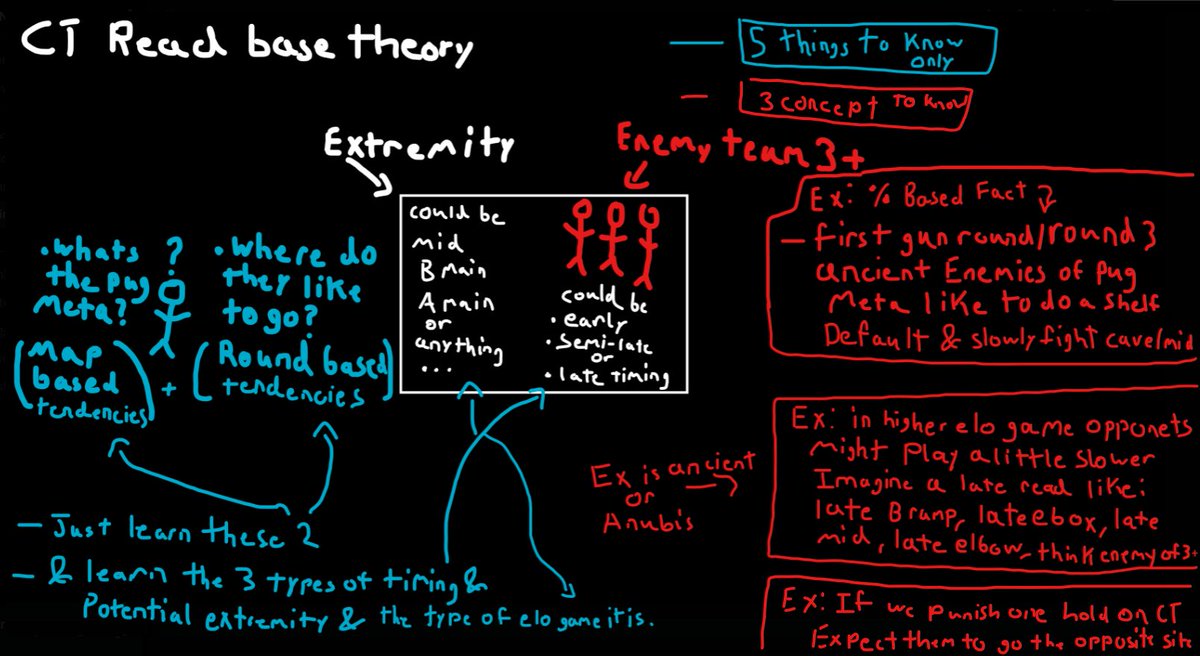 CT Read base theory
— 5 things to know
only
— 3 concept to know
Extremity
Enemy team 3+
could be
mid
B main
A main
or
anything
...
could be
• early
• semi-late
or
• late timing
• whats ?
the pug
Meta?
(Map
based
tendencies)
+
• where do
they like
to go?
(Round based
tendencies)
— Just learn these 2
— & learn the 3 types of timing &
Potential extremity & the type of elo game it is.
Ex: % Based Fact
— first gun round/round 3
ancient Enemies of pug
Meta like to do a shelf
Default & slowly fight cave/mid
Ex is ancient
or
Anubis
Ex: in higher elo game opponets
might play a little slower
Imagine a late read like:
late B ramp, late ebox, late
mid, late elbow, think enemy of 3+
Ex: If we punish one hold on CT
Expect them to go the opposite site